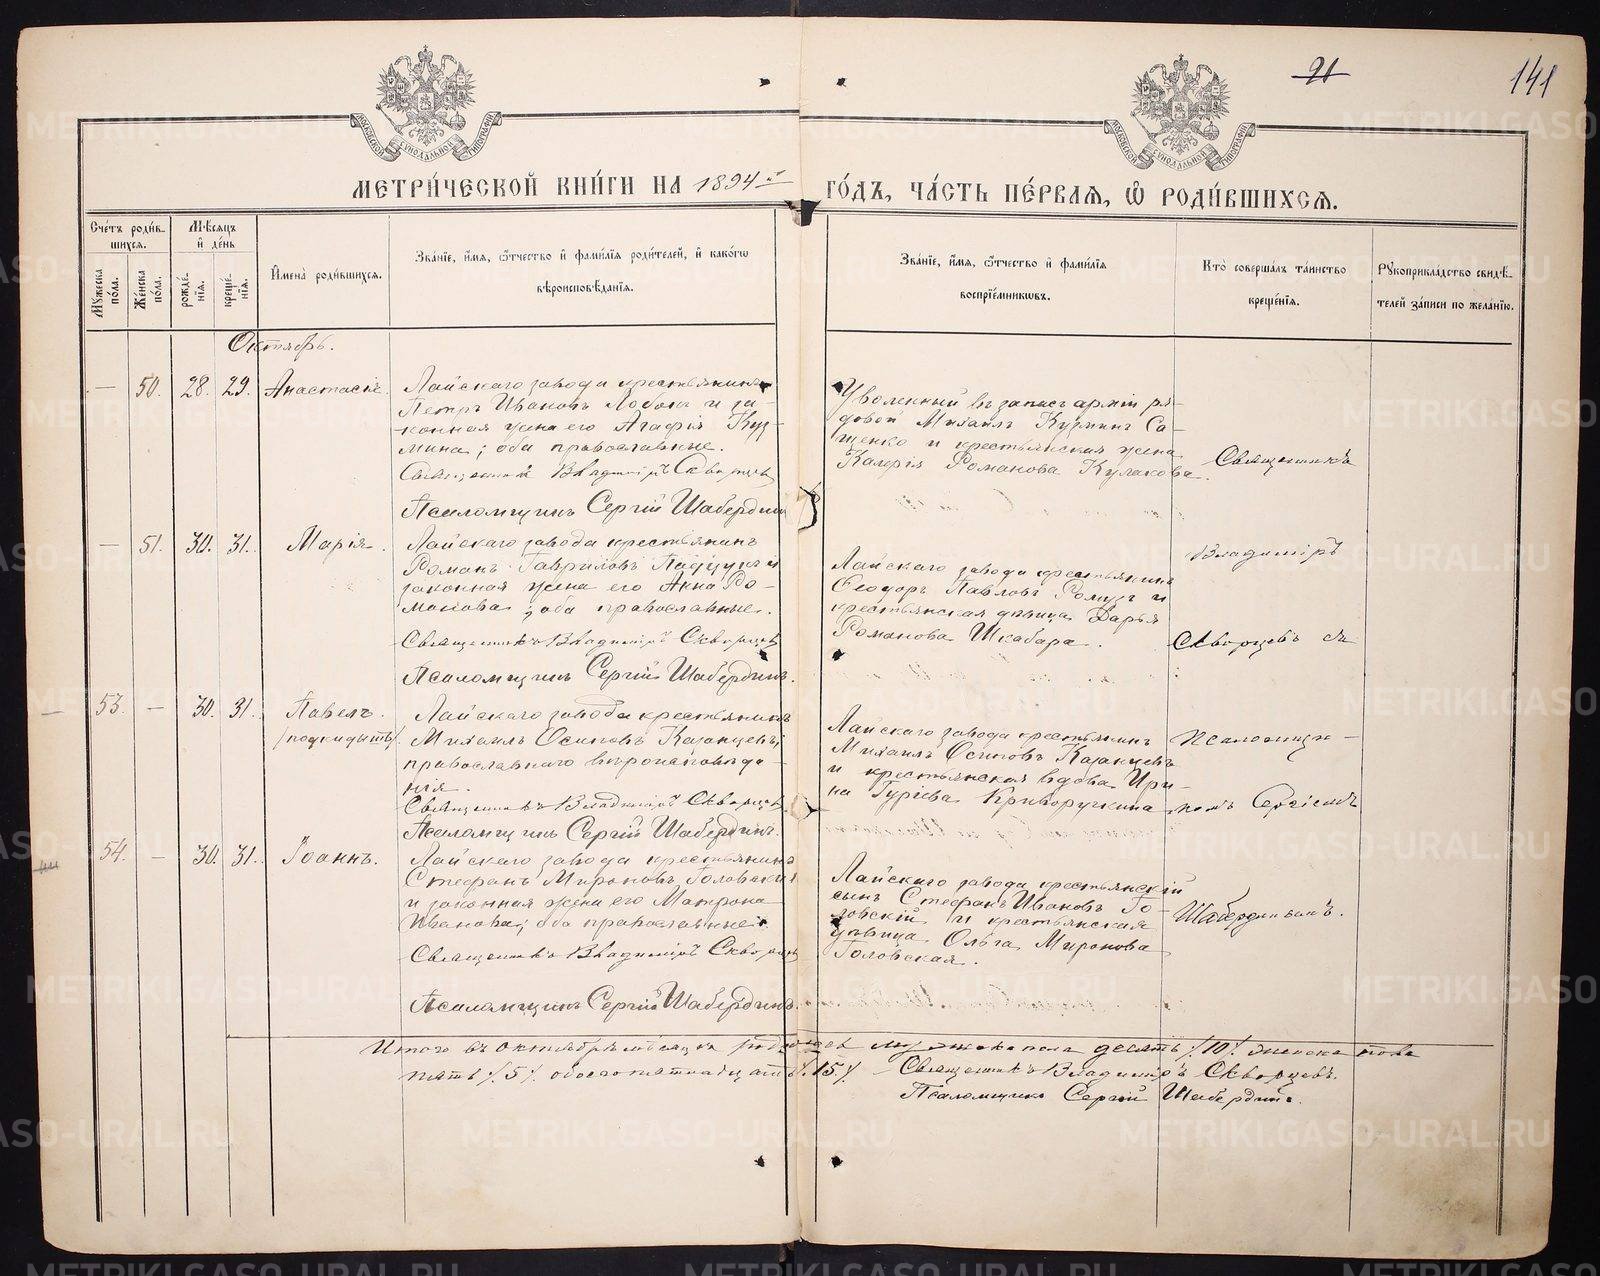 21
141
МОСКОВСКОЙ СѴНОДАЛЬНОЙ ТИПОГРАФІИ
МОСКОВСКОЙ СѴНОДАЛЬНОЙ ТИПОГРАФІИ
МЕТРИ́ЧЕСКОЙ КНИ́ГИ НА 1894 й
ГО́ДЪ, ЧА́СТЬ ПЕ́РВАЯ, Ѡ РОДИ́ВШИХСЯ.
Сче́тъ роди́в-
шихся.
Мѣ́сяцъ
и҆ де́нь
Му́жеска
по́ла.
Же́нска
по́ла.
рожде́-
нїя.
креще́-
нїя.
И҆мена̀ роди́вшихся.
Зва́нїе, и҆́мя, ѻ҆́тчество и҆ фами́лїя роди́телей, и҆ како́гѡ
вѣроисповѣ́данїя.
Зва́нїе, и҆́мя, ѻ҆́тчество и҆ фами́лїя
воспрїе́мникѡвъ.
Кто̀ соверша́лъ та́инство
креще́нїя.
Рукоприкла́дство свидѣ́-
телей за́писи по жела́нїю.
Октябрь.
— 50. 28. 29. Анастасія.
Лайскаго завода крестьянинъ
Петръ Ивановъ Лобокъ и за-
конная жена его Агафія Куз-
мина; оба православные.
Священникъ Владиміръ Скворцевъ
Псаломщикъ Сергій Шабердинъ
Уволенный въ запасъ арміи ря-
довой Михаилъ Кузминъ Са-
щенко и крестьянская жена
Калерія Романова Кулакова.
Священникъ
— 51. 30. 31. Марія.
Лайскаго завода крестьянинъ
Романъ Гавриловъ и
законная жена его Анна Ро-
манова; оба православные.
Священникъ Владиміръ Скворцевъ
Псаломщикъ Сергій Шабердинъ.
Лайскаго завода крестьянинъ
Ѳеодоръ Павловъ и
крестьянская дѣвица Дарья
Романова Шкабара.
Владиміръ
Скворцевъ съ
53. — 30. 31. Павелъ.
/подкидышъ/
Лайскаго завода крестьянинъ
Михаилъ Осиповъ Казанцевъ,
православнаго вѣроисповѣда-
нія.
Священникъ Владиміръ Скворцевъ
Псаломщикъ Сергій Шабердинъ.
Лайскаго завода крестьянинъ
Михаилъ Осиповъ Казанцевъ
и крестьянская вдова Ири-
на Гуріева Криворучкина
псаломщи-
комъ Сергіемъ
54. — 30. 31. Іоаннъ.
Лайскаго завода крестьянинъ
Стефанъ Мироновъ Головскій
и законная жена его Матрона
Иванова; оба православные.
Священникъ Владиміръ Скворцевъ
Псаломщикъ Сергій Шабердинъ.
Лайскаго завода крестьянскій
сынъ Стефанъ Ивановъ Го-
ловскій и крестьянская
дѣвица Ольга Миронова
Головская.
Шабердинымъ.
Итого въ октябрѣ мѣсяцѣ родилось мужеска пола десять /10/ женска пола
пять /5/ обоего пятнадцать /15/ Священникъ Владиміръ Скворцевъ.
Псаломщикъ Сергій Шабердинъ.
METRIKI.GASO-URAL.RU